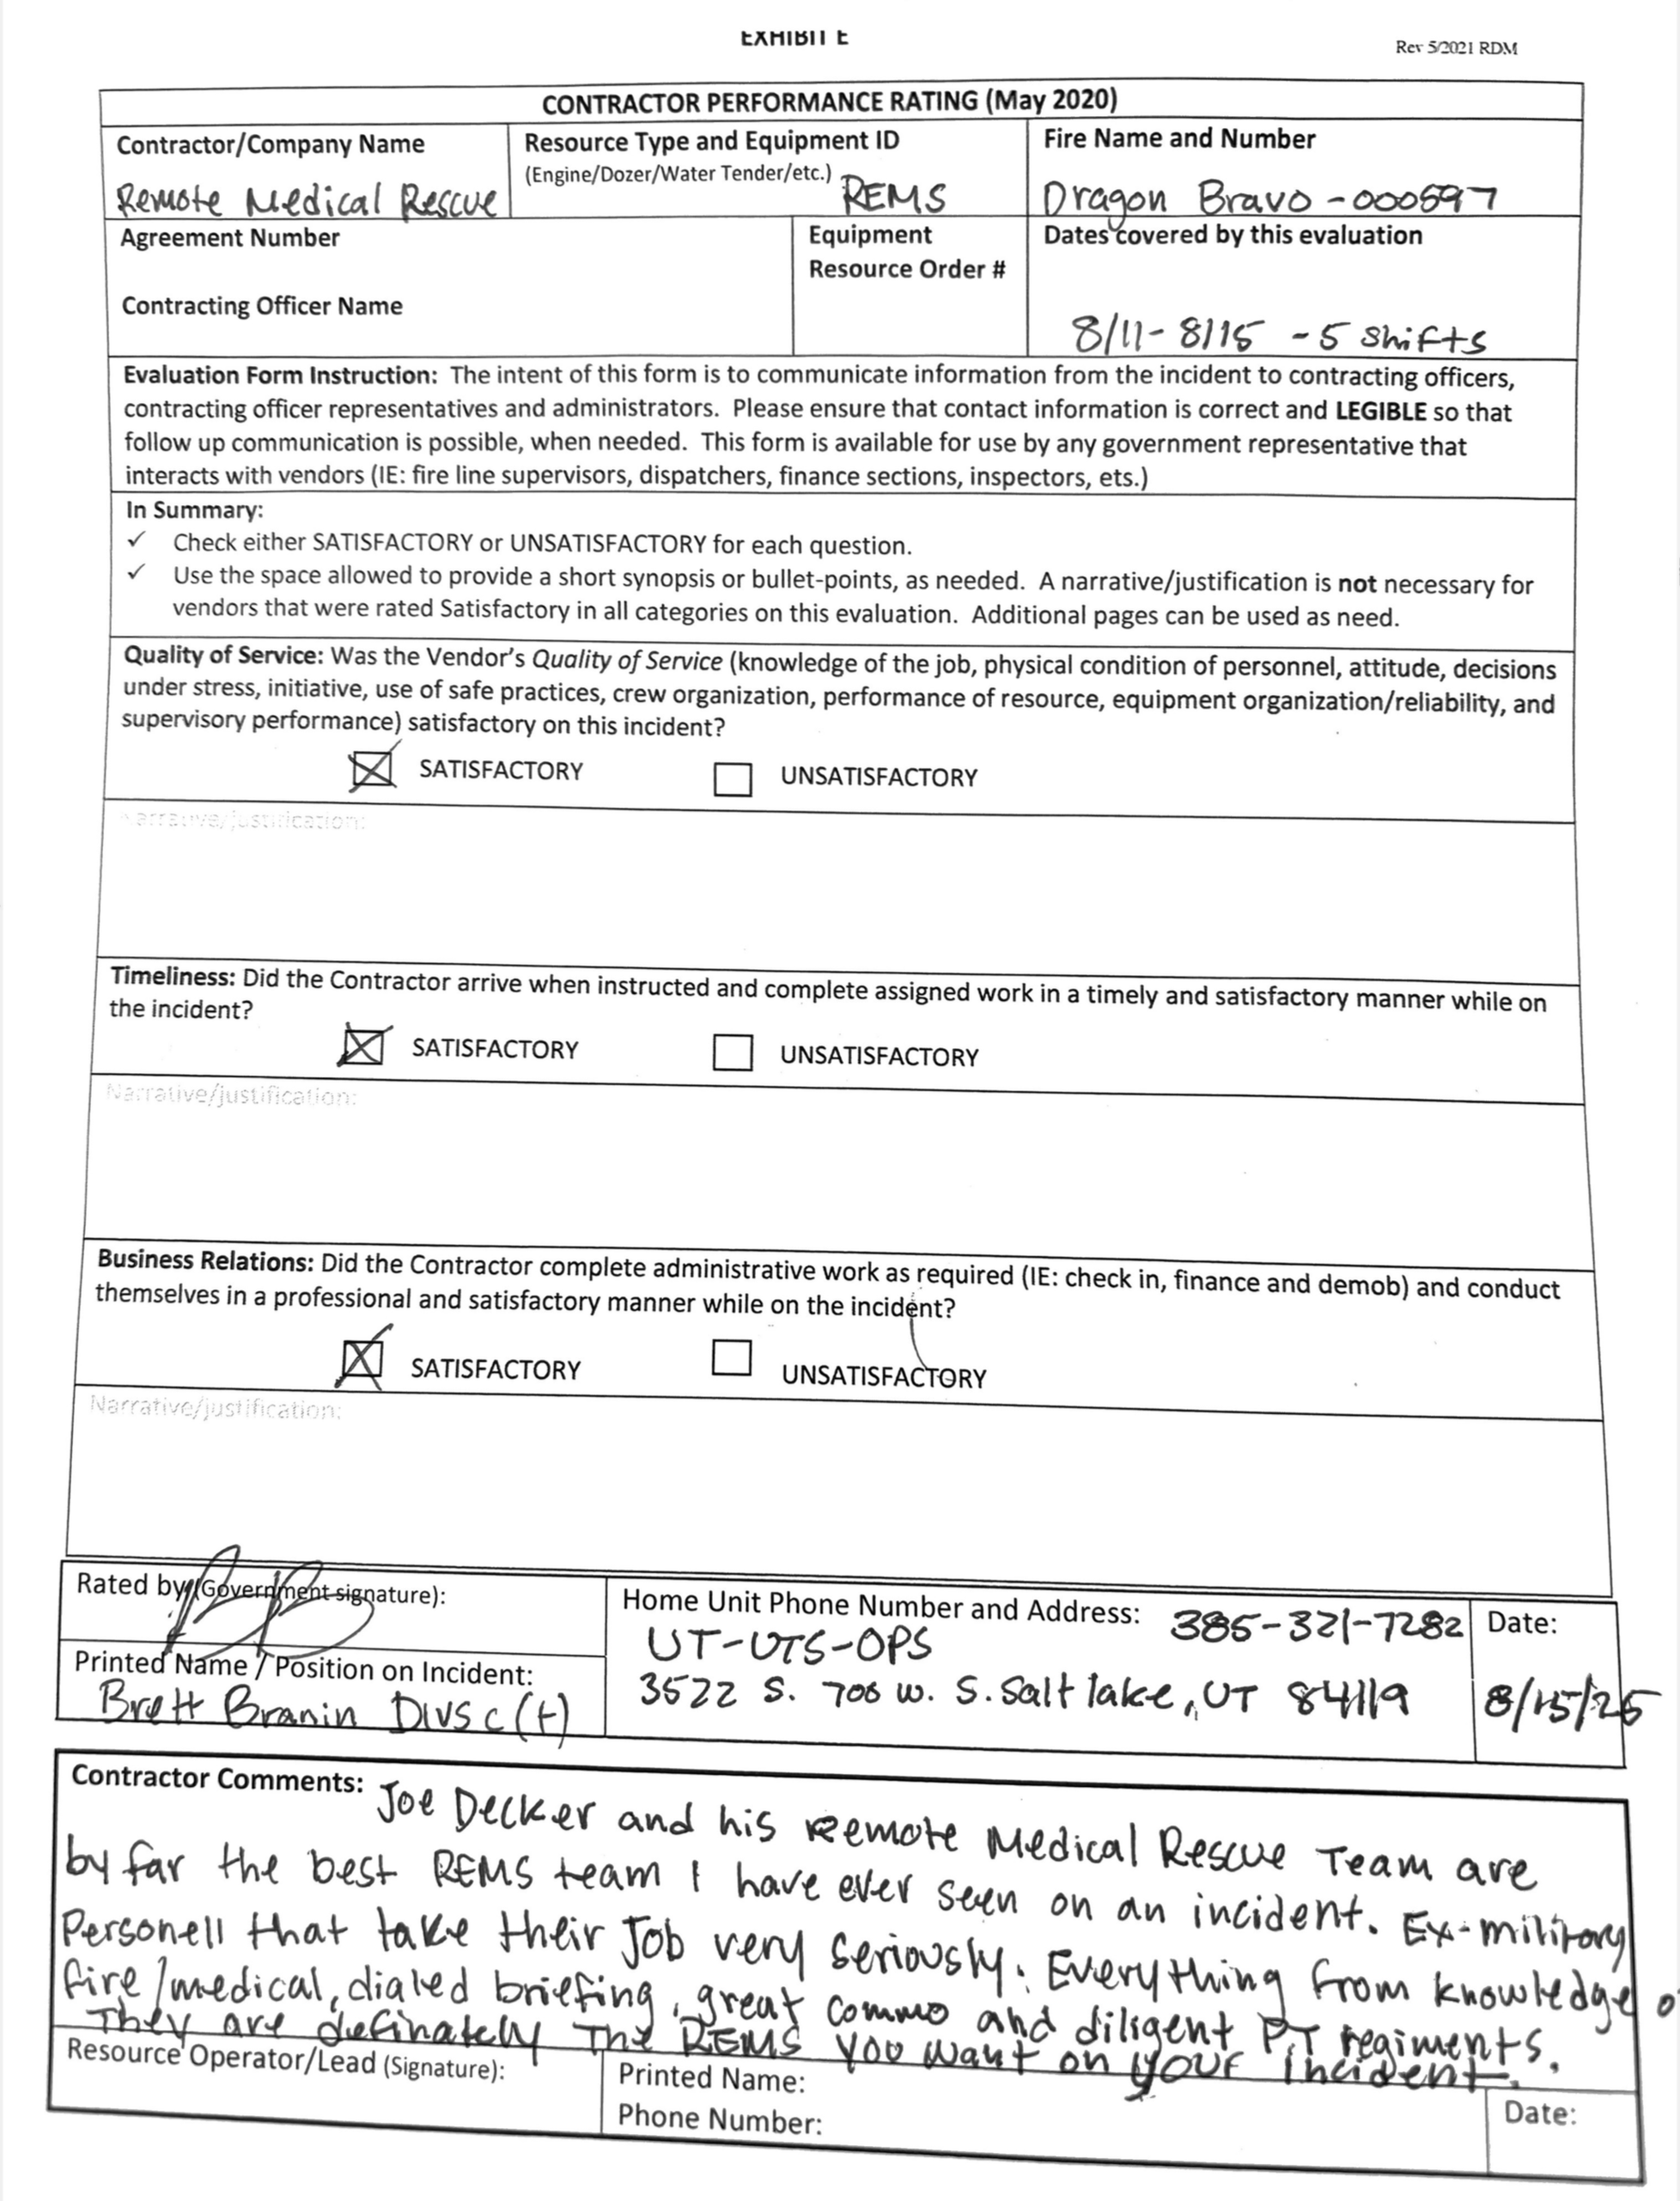 EXHIBIT E
Rev 5/2021 RDM
CONTRACTOR PERFORMANCE RATING (May 2020)
Contractor/Company Name
Remote Medical Rescue
Resource Type and Equipment ID
(Engine/Dozer/Water Tender/etc.) REMS
Fire Name and Number
Dragon Bravo - 000597
Agreement Number
Contracting Officer Name
Equipment
Resource Order #
Dates covered by this evaluation
8/11 - 8/15 - 5 shifts
Evaluation Form Instruction: The intent of this form is to communicate information from the incident to contracting officers,
contracting officer representatives and administrators. Please ensure that contact information is correct and LEGIBLE so that
follow up communication is possible, when needed. This form is available for use by any government representative that
interacts with vendors (IE: fire line supervisors, dispatchers, finance sections, inspectors, ets.)
In Summary:
✓ Check either SATISFACTORY or UNSATISFACTORY for each question.
✓ Use the space allowed to provide a short synopsis or bullet-points, as needed. A narrative/justification is not necessary for
vendors that were rated Satisfactory in all categories on this evaluation. Additional pages can be used as need.
Quality of Service: Was the Vendor's Quality of Service (knowledge of the job, physical condition of personnel, attitude, decisions
under stress, initiative, use of safe practices, crew organization, performance of resource, equipment organization/reliability, and
supervisory performance) satisfactory on this incident?
☒ SATISFACTORY ☐ UNSATISFACTORY
Narrative/justification:
Timeliness: Did the Contractor arrive when instructed and complete assigned work in a timely and satisfactory manner while on
the incident?
☒ SATISFACTORY ☐ UNSATISFACTORY
Narrative/justification:
Business Relations: Did the Contractor complete administrative work as required (IE: check in, finance and demob) and conduct
themselves in a professional and satisfactory manner while on the incident?
☒ SATISFACTORY ☐ UNSATISFACTORY
Narrative/justification:
Rated by (Government signature):
Printed Name / Position on Incident:
Brett Branin DIVS c (t)
Home Unit Phone Number and Address: 385-321-7282
UT-UTS-OPS
3522 S. 700 w. S. Salt lake, UT 84119
Date:
8/15/25
Contractor Comments: Joe Decker and his Remote Medical Rescue Team are
by far the best REMS team I have ever seen on an incident. Ex-military
Personell that take their Job very seriously. Everything from knowledge o
fire/medical, dialed briefing, great commo and diligent PT regiments.
They are definately The REMS you want on your incident.
Resource Operator/Lead (Signature):
Printed Name:
Phone Number:
Date: